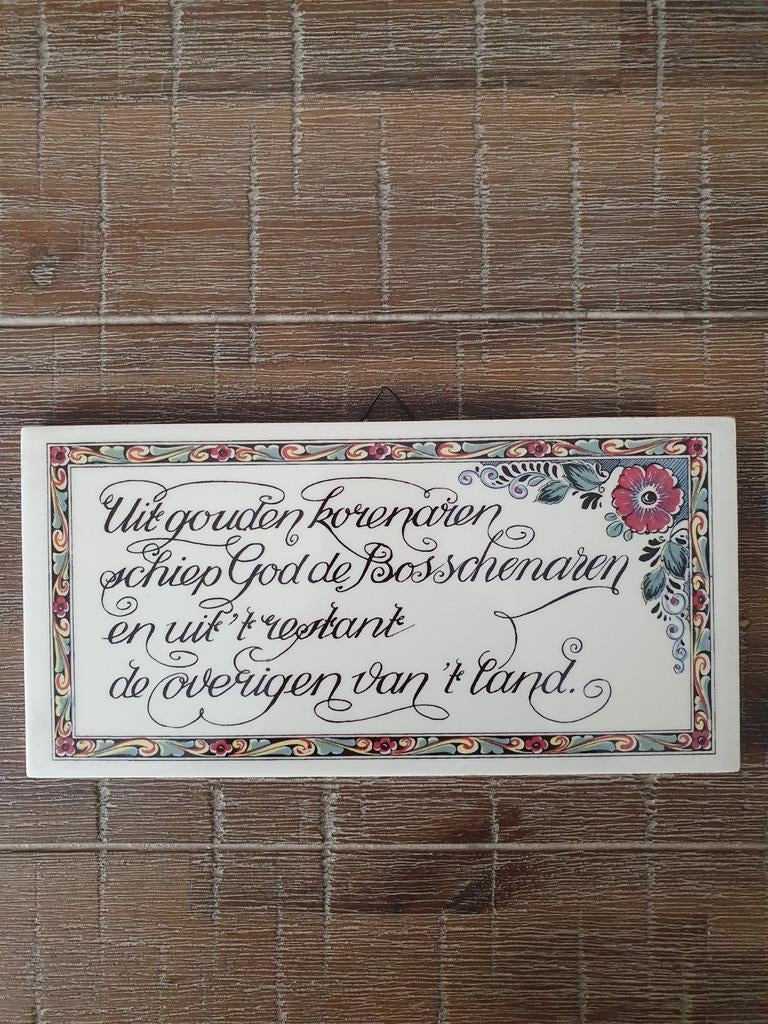 Uit gouden korenaren
schiep God de Bosschenaren
en uit 't restant
de overigen van 't land.